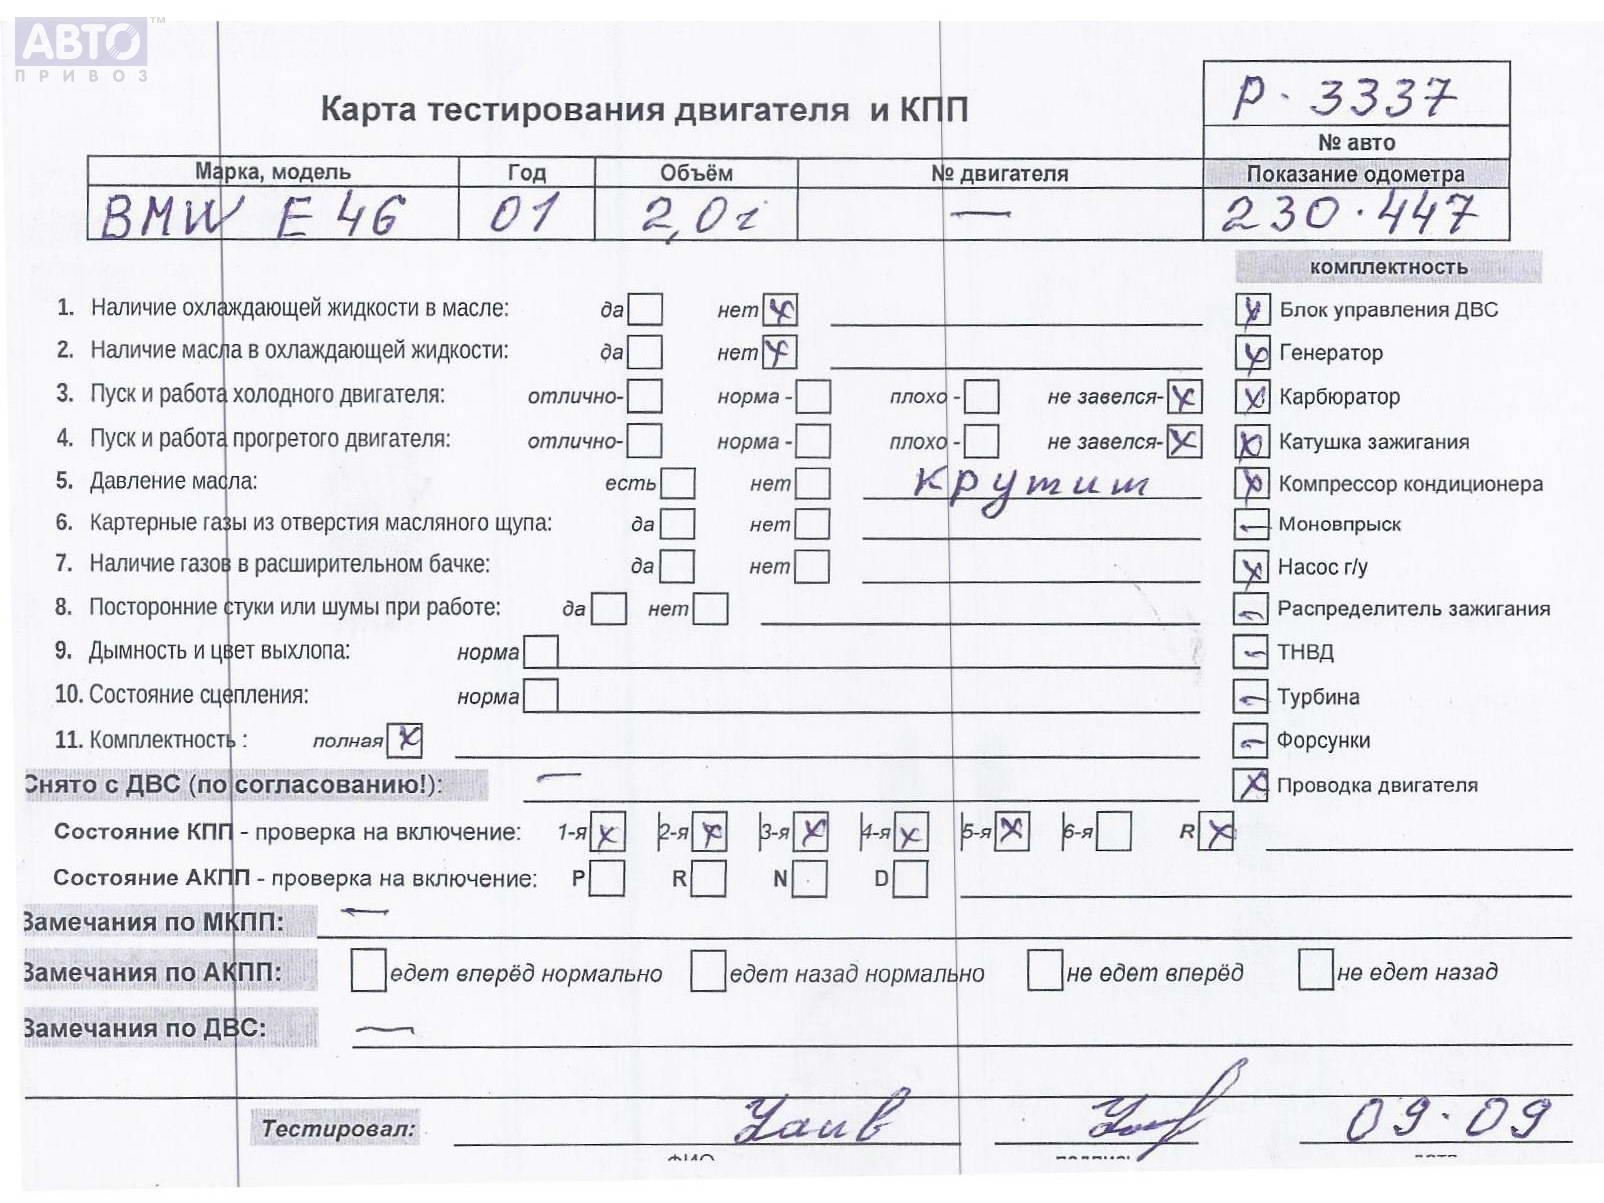 АВТО™
ПРИВОЗ
Р - 3337
Карта тестирования двигателя и КПП
№ авто
Марка, модель Год Объём № двигателя Показание одометра
BMW E 46 01 2,0i — 230.447
комплектность
1. Наличие охлаждающей жидкости в масле: да нет x Блок управления ДВС
2. Наличие масла в охлаждающей жидкости: да нет x Генератор
3. Пуск и работа холодного двигателя: отлично- норма - плохо - не завелся- x Карбюратор
4. Пуск и работа прогретого двигателя: отлично- норма - плохо - не завелся- x Катушка зажигания
5. Давление масла: есть нет крутит Компрессор кондиционера
6. Картерные газы из отверстия масляного щупа: да нет Моновпрыск
7. Наличие газов в расширительном бачке: да нет Насос г/у
8. Посторонние стуки или шумы при работе: да нет Распределитель зажигания
9. Дымность и цвет выхлопа: норма ТНВД
10. Состояние сцепления: норма Турбина
11. Комплектность : полная x Форсунки
Снято с ДВС (по согласованию!): — Проводка двигателя
Состояние КПП - проверка на включение: 1-я x 2-я x 3-я x 4-я x 5-я x 6-я R x
Состояние АКПП - проверка на включение: P R N D
Замечания по МКПП: —
Замечания по АКПП: едет вперёд нормально едет назад нормально не едет вперёд не едет назад
Замечания по ДВС: —
Тестировал: 09.09
ФИО подпись дата